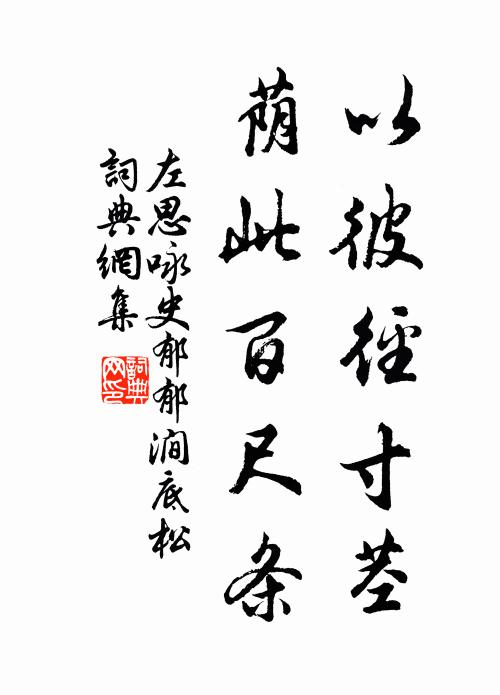 以彼徑寸莖
荫此百尺条
左思咏史郁郁澗底松
詞典網集
詞典网印